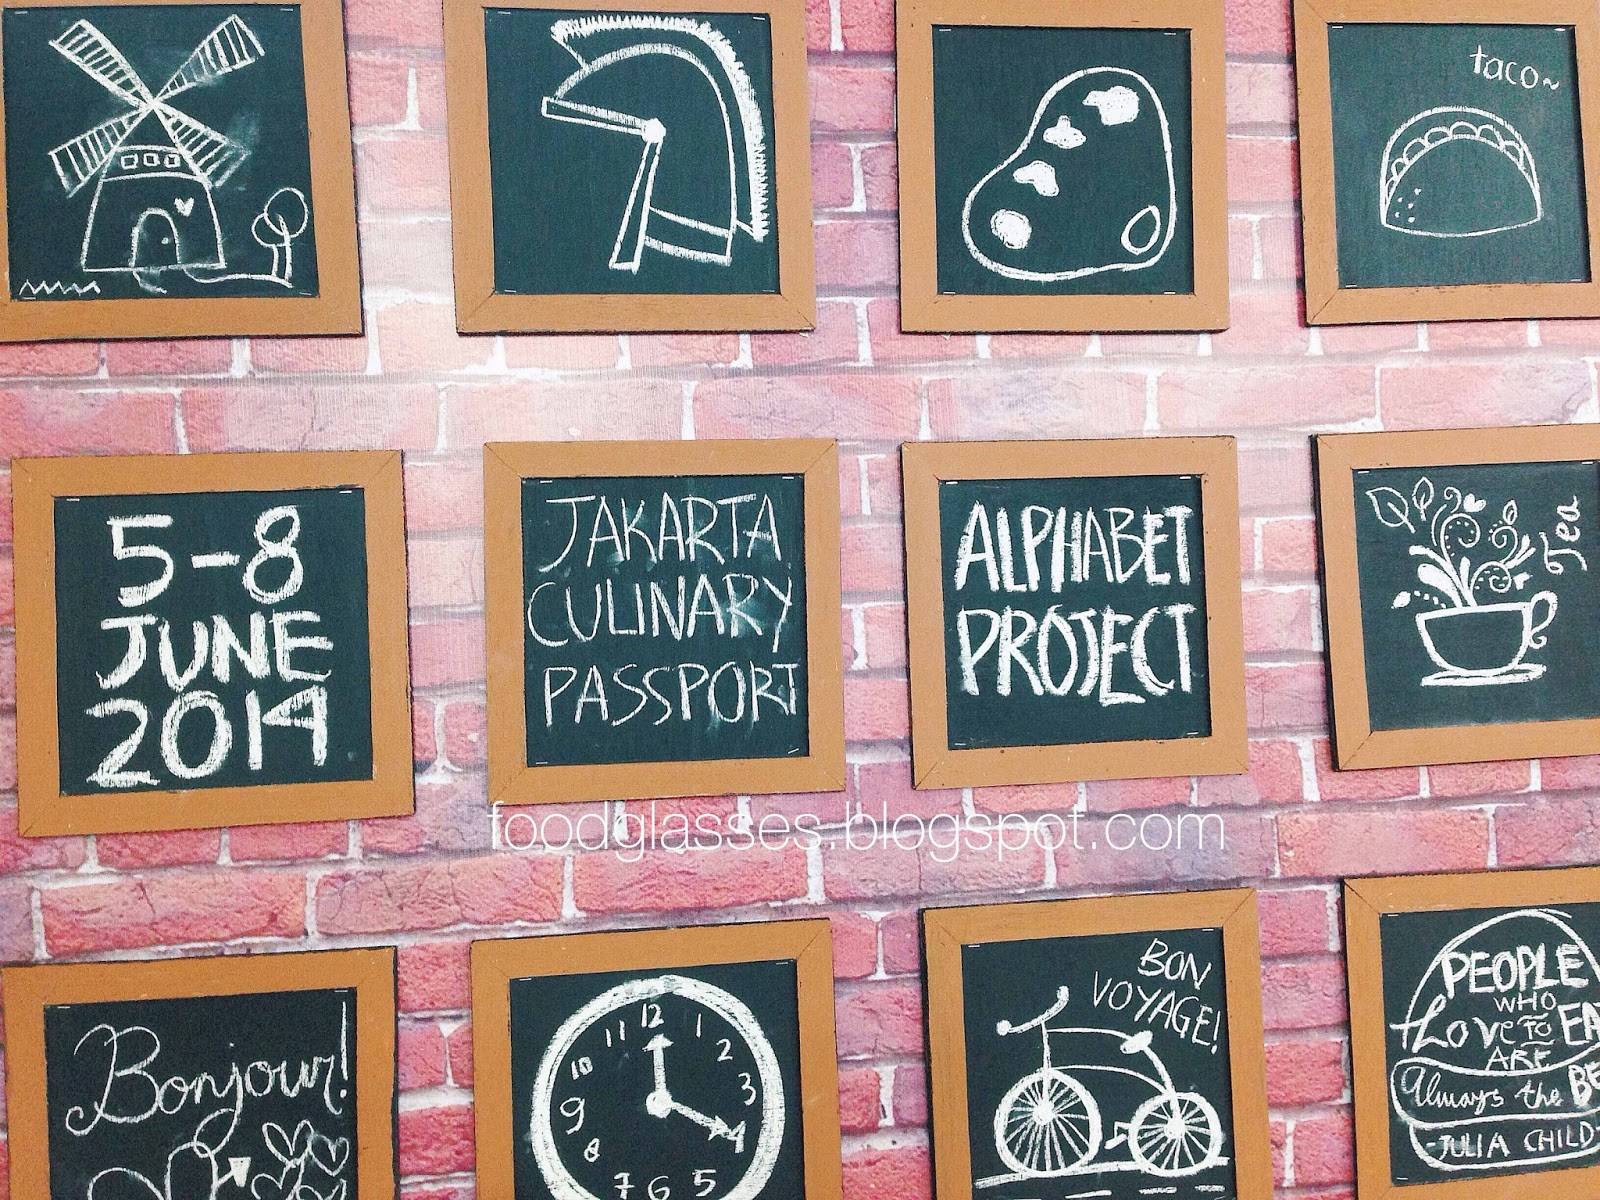 taco~
5-8
JUNE
2014
JAKARTA
CULINARY
PASSPORT
ALPHABET
PROJECT
Tea
foodglasses.blogspot.com
Bonjour!
12
11 1
10 2
9 3
8 4
7 6 5
BON
VOYAGE!
PEOPLE
WHO
Love to
ARE
Always the
-JULIA CHILD-